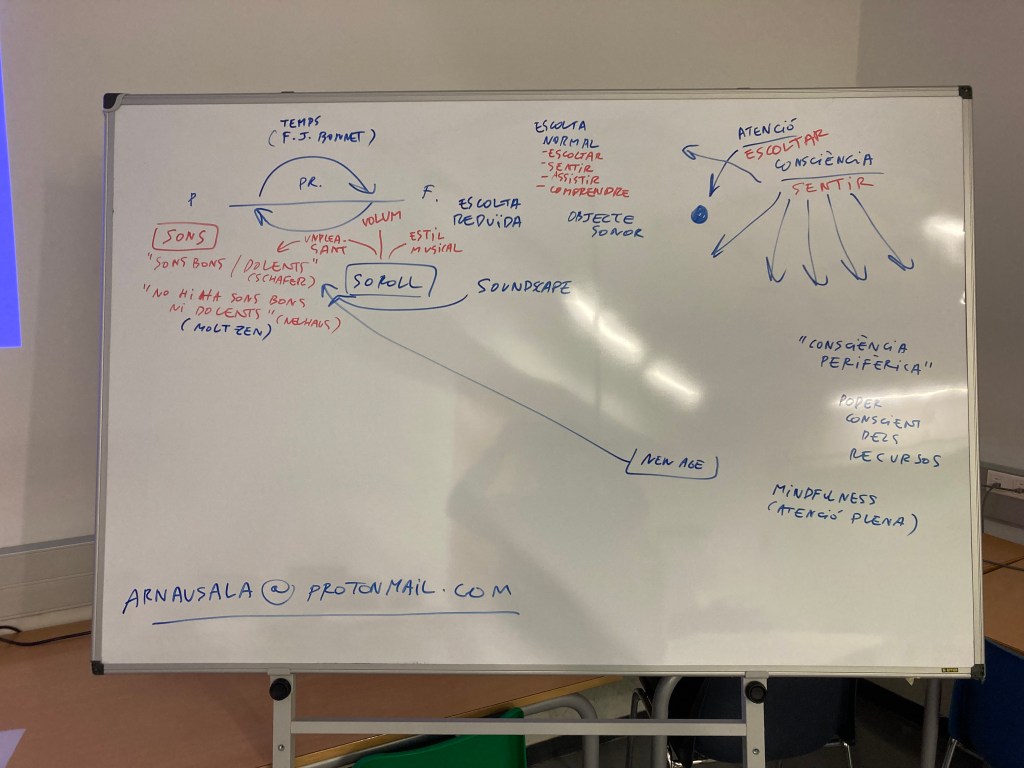 TEMPS
(F.J. BONNET)
PR.
P
F.
SONS
"SONS BONS / DOLENTS"
(SCHAFER)
"NO HI HA SONS BONS
NI DOLENTS" (NEUHAUS)
(MOLT ZEN)
UNPLEA-
SANT
VOLUM
ESTIL
MUSICAL
SOROLL
SOUNDSCAPE
ESCOLTA
REDUÏDA
ESCOLTA
NORMAL
- ESCOLTAR
- SENTIR
- ASSISTIR
- COMPRENDRE
OBJECTE
SONOR
ATENCIÓ
ESCOLTAR
CONSCIÈNCIA
SENTIR
"CONSCIÈNCIA
PERIFÈRICA"
PODER
CONSCIENT
DELS
RECURSOS
NEW AGE
MINDFULNESS
(ATENCIÓ PLENA)
ARNAUSALA@PROTONMAIL.COM